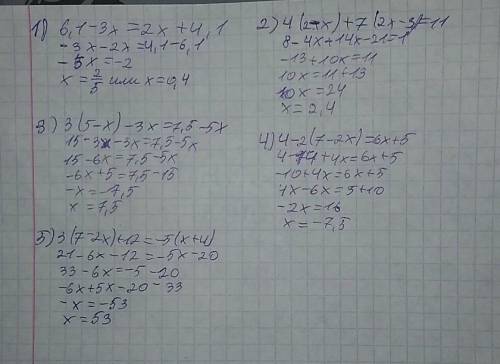 1) 6,1-3x=2x+4,1
-3x-2x=4,1-6,1
-5x=-2
x=2/5 или x=0,4
2) 4(2-x)+7(2x-3)=11
8-4x+14x-21=11
-13+10x=11
10x=11+13
10x=24
x=2,4
3) 3(5-x)-3x=7,5-5x
15-3x-3x=7,5-5x
15-6x=7,5-5x
-6x+5=7,5-15
-x=-7,5
x=7,5
4) 4-2(7-2x)=6x+5
4-14+4x=6x+5
-10+4x=6x+5
4x-6x=5+10
-2x=16
x=-7,5
5) 3(7-2x)+12=-5(x+4)
21-6x-12=-5x-20
33-6x=-5-20
-6x+5x-20-33
-x=-53
x=53